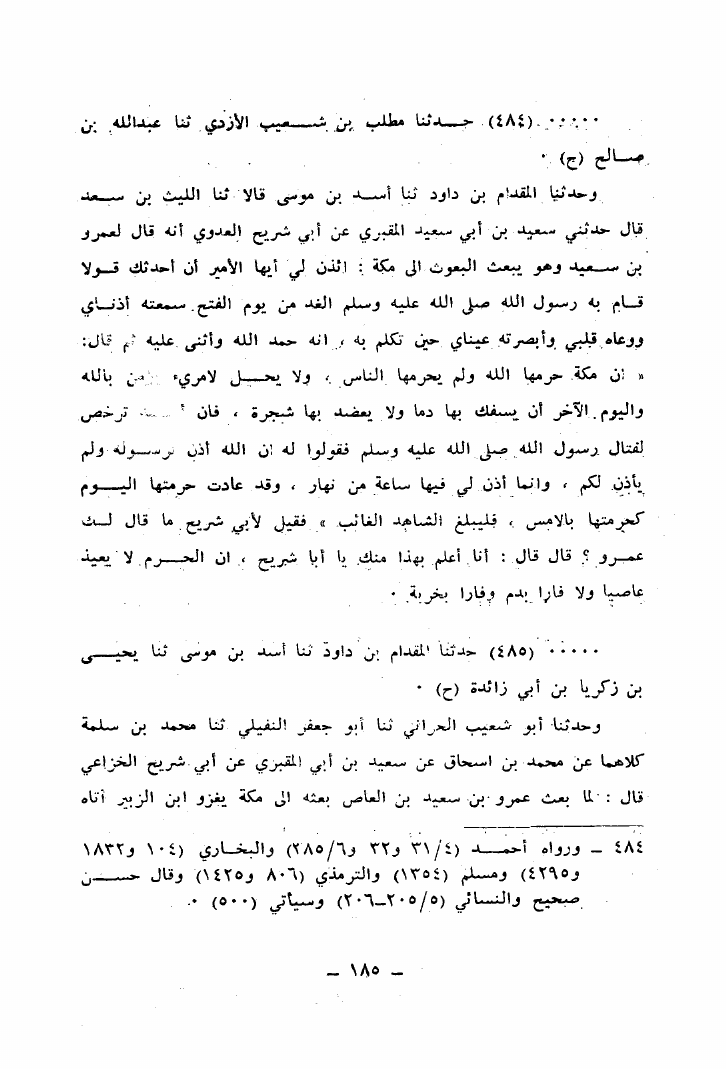 ..... (٤٨٤) حـــدثنا مطلب بن شـــعيب الأزدي ثنا عبدالله بن
صـــالح (ح) ٠
وحدثنا المقدام بن داود ثنا أســد بن موسى قالا ثنا الليث بن ســعد
قال حدثني سعيد بن أبي سعيد المقبري عن أبي شريح العدوي أنه قال لعمرو
بن ســعيد وهو يبعث البعوث الى مكة : ائذن لي أيها الأمير أن أحدثك قــولا
قــام به رسول الله صلى الله عليه وسلم الغد من يوم الفتح سمعته أذنــاي
ووعاه قلبي وأبصرته عيناي حين تكلم به ، انه حمد الله وأثنى عليه ثم قال:
« ان مكة حرمها الله ولم يحرمها الناس ، ولا يحـــل لامريء بالله
واليوم الآخر أن يسفك بها دما ولا يعضد بها شجرة ، فان ترخص
لقتال رسول الله صلى الله عليه وسلم فقولوا له ان الله أذن لرســوله ولم
يأذن لكم ، وانما أذن لي فيها ساعة من نهار ، وقد عادت حرمتها اليـــوم
كحرمتها بالامس ، فليبلغ الشاهد الغائب » فقيل لأبي شريح ما قال لــك
عمــرو ؟ قال قال : أنا أعلم بهذا منك يا أبا شريح ، ان الحـــرم لا يعيذ
عاصيا ولا فارا بدم وفارا بخربة ٠
..... (٤٨٥) حدثنا المقدام بن داود ثنا أسد بن موسى ثنا يحيـــى
بن زكريا بن أبي زائدة (ح) ٠
وحدثنا أبو شعيب الحراني ثنا أبو جعفر النفيلي ثنا محمد بن سلمة
كلاهما عن محمد بن اسحاق عن سعيد بن أبي المقبري عن أبي شريح الخزاعي
قال : لما بعث عمرو بن سعيد بن العاص بعثه الى مكة يغزو ابن الزبير أتاه
٤٨٤ ــ ورواه أحمـــد (٣١/٤ و٣٢ و٢٨٥/٦) والبخــاري (١٠٤ و١٨٣٢
و٤٢٩٥) ومسلم (١٣٥٤) والترمذي (٨٠٦ و١٤٢٥) وقال حســـن
صحيح والنسائي (٢٠٥/٥ــ٢٠٦) وسيأتي (٥٠٠) ٠
ــ ١٨٥ ــ